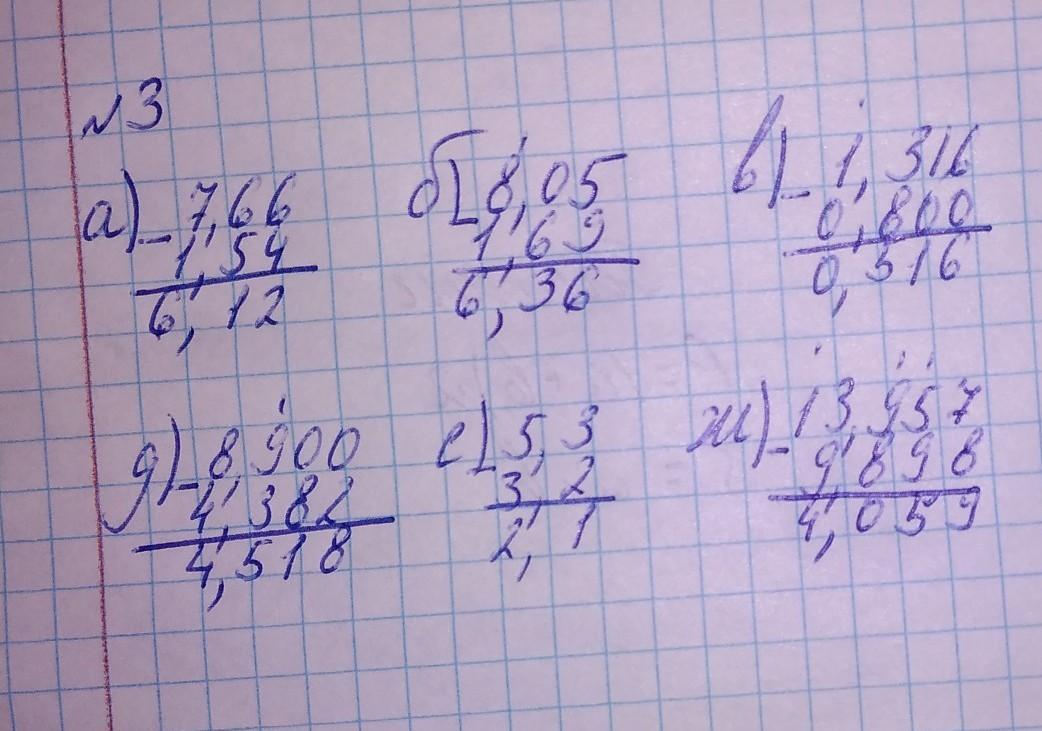 №3
а) - 7,66   б) - 8,05   в) - 1,316
1,54   1,69   0,800
6,12   6,36   0,516
д) - 8,900   е) - 5,3   ж) - 13,957
4,382   3,2   9,898
4,518   2,1   4,059